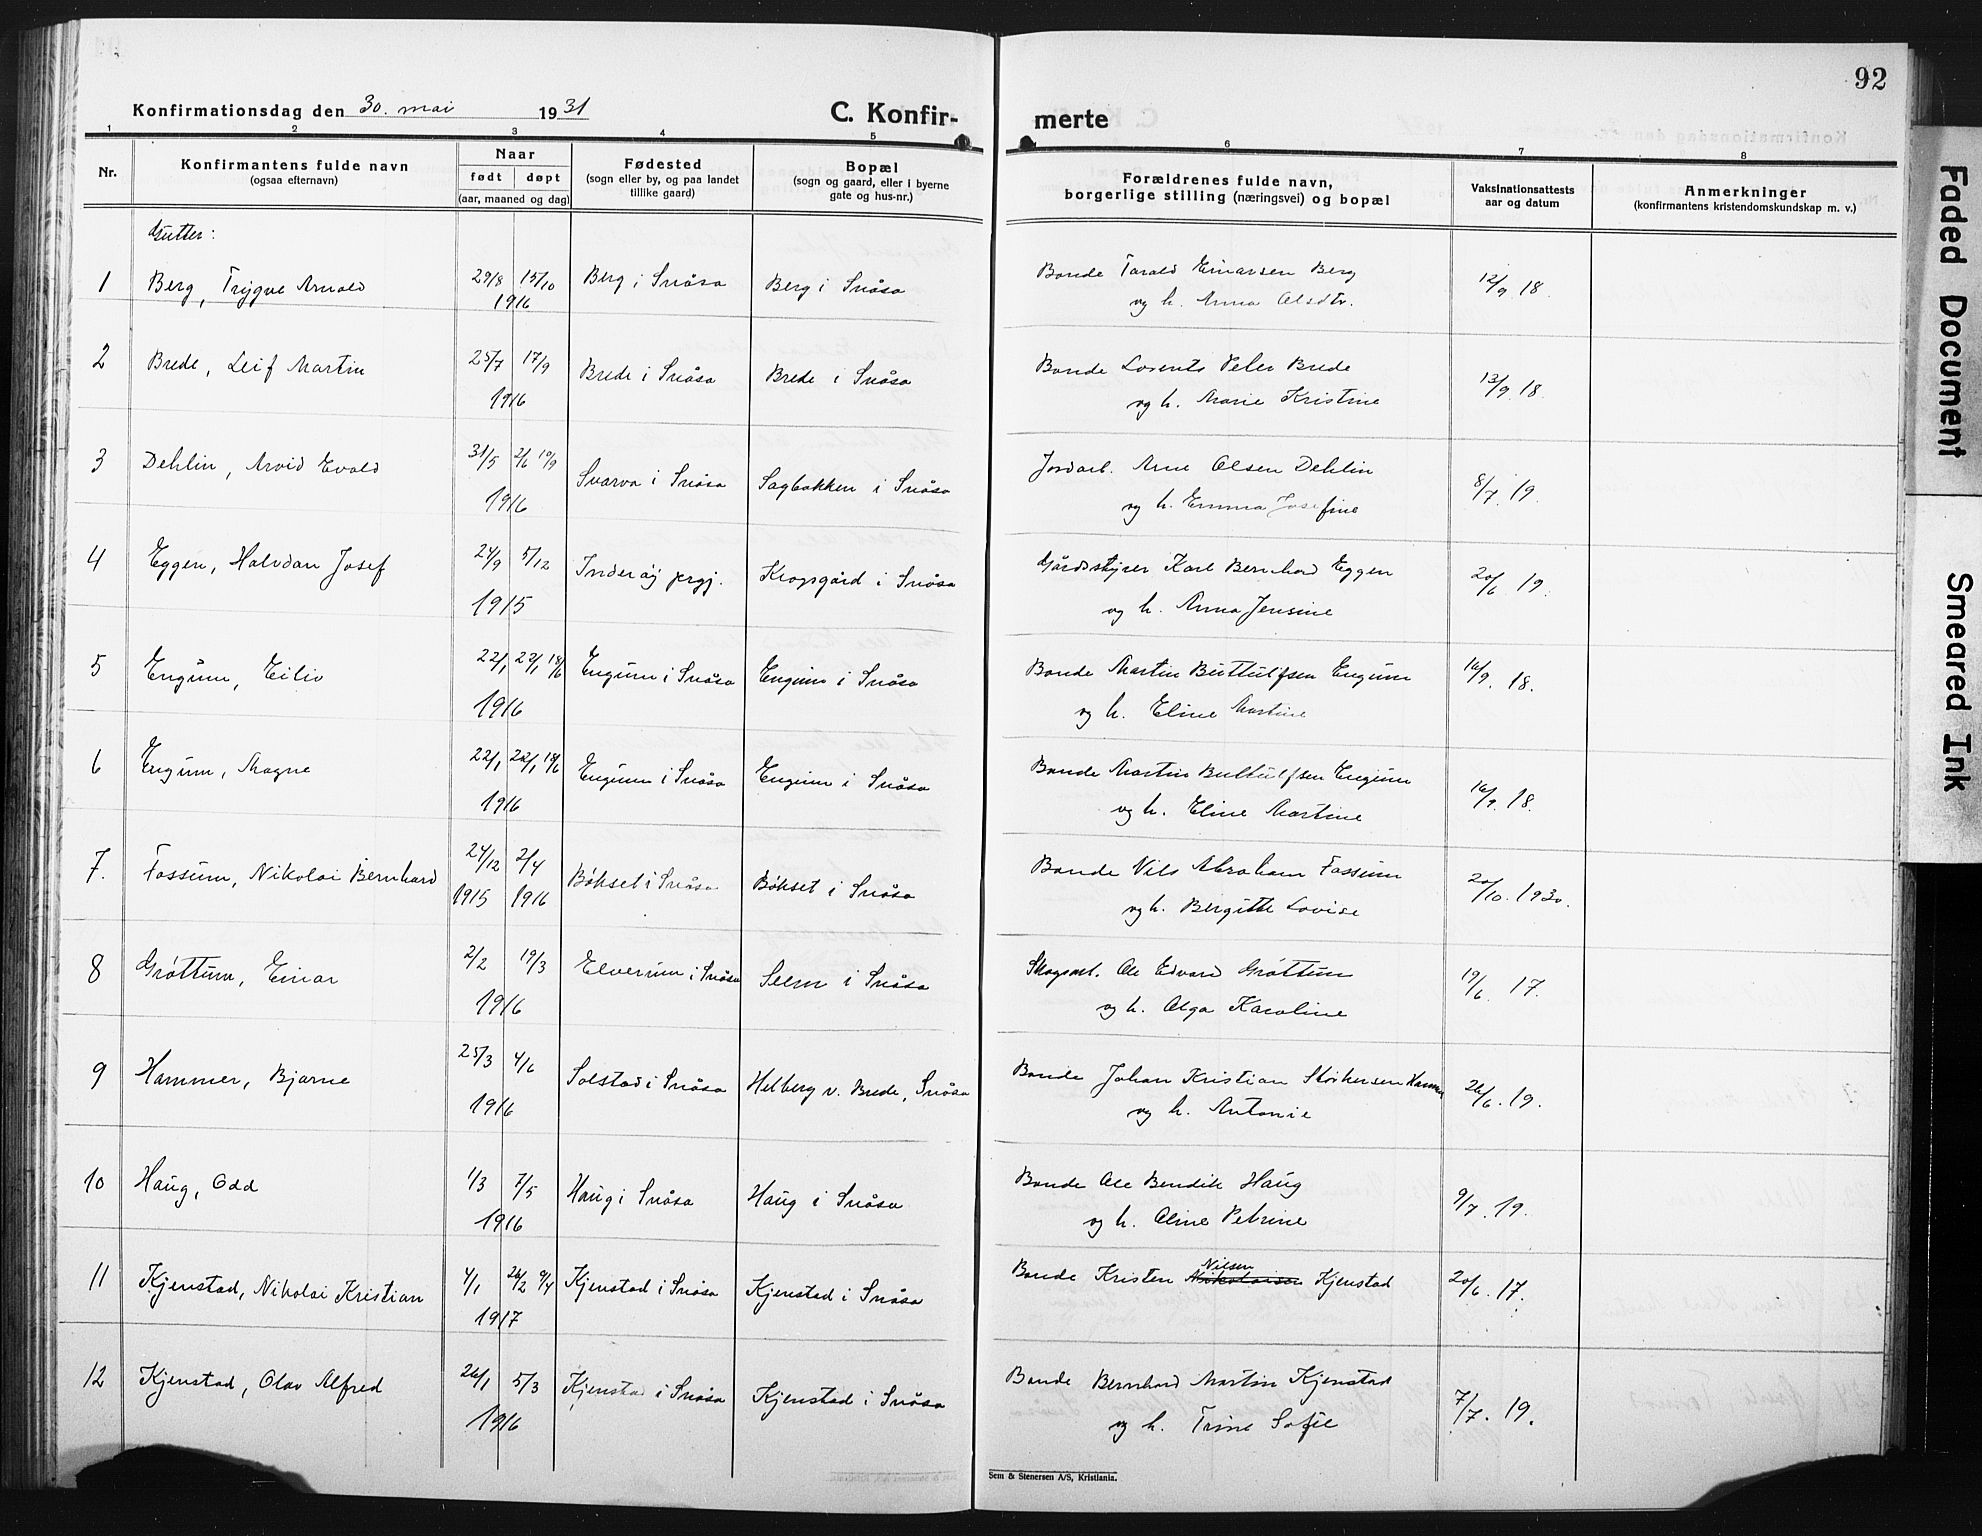 92
Konfirmationsdag den 30. mai 1931
C. Konfir-
merte
1 2 3 4 5 6 7 8
Nr.
Konfirmantens fulde navn
(ogsaa efternavn)
Naar
født døpt
(aar, maaned og dag)
Fødested
(sogn eller by, og paa landet
tillike gaard)
Bopæl
(sogn og gaard, eller i byerne
gate og hus-nr.)
Forældrenes fulde navn,
borgerlige stilling (næringsvei) og bopæl
Vaksinationsattests
aar og datum
Anmerkninger
(konfirmantens kristendomskundskap m. v.)
Gutter:
1 Berg, Trygve Arnold 29/8 15/10 Berg i Snåsa Berg i Snåsa Bonde Tarald Einarsen Berg 12/9 18.
1916 og h. Anna Olsdtr.
2 Brede, Leif Martin 25/7 17/9 Brede i Snåsa Brede i Snåsa Bonde Lorents Peter Brede 13/9 18.
1916 og h. Marie Kristine
3 Dehlin, Arvid Evald 31/5 2/6 10/9 Svarva i Snåsa Sagbakken i Snåsa Jordarb. Arne Olsen Dehlin 8/7. 19.
1916 og h. Emma Josefine
4 Eggen, Halvdan Josef 24/9 5/12 Inderøy prgj. Krogsgård i Snåsa Gårdsstyrer Karl Bernhard Eggen 20/6 19.
1915 og h. Anna Jensine
5 Engum, Eiliv 22/1 22/1 18/6 Engum i Snåsa Engum i Snåsa Bonde Martin Buttulfsen Engum 16/9. 18.
1916 og h. Eline Martine
6 Engum, Magne 22/1 22/1 18/6 Engum i Snåsa Engum i Snåsa Bonde Martin Buttulfsen Engum 16/9. 18.
1916 og h. Eline Martine
7. Fossum, Nikolai Bernhard 24/12 2/4 Bøkset i Snåsa Bøkset i Snåsa Bonde Nils Abraham Fossum 20/10. 1930.
1915 1916 og h. Bergitte Lovise
8 Grøttum, Einar 2/2 19/3 Elverum i Snåsa Seem i Snåsa Skogsarb. Ole Edvard Grøttum 19/6 17.
1916 og h. Olga Karoline
9 Hammer, Bjarne 25/3 4/6 Solstad i Snåsa Helberg v. Brede, Snåsa Bonde Johan Kristian Størkersen Hammer 26/6. 19.
1916 og h. Antonie
10 Haug, Odd 1/3 7/5 Haug i Snåsa Haug i Snåsa Bonde Ole Bendik Haug 9/7. 19.
1916 og h. Oline Petrine
11 Kjenstad, Nikolai Kristian 4/1 26/2 9/4 Kjenstad i Snåsa Kjenstad i Snåsa Bonde Kristen Nikolaisen Nilsen Kjenstad 20/6. 17.
1917
12 Kjenstad, Olav Alfred 26/1 5/3 Kjenstad i Snåsa Kjenstad i Snåsa Bonde Bernhard Martin Kjenstad 7/7. 19.
1916 og h. Trine Sofie
Sem & Stenersen A/S, Kristiania.
Faded Document
Smeared Ink